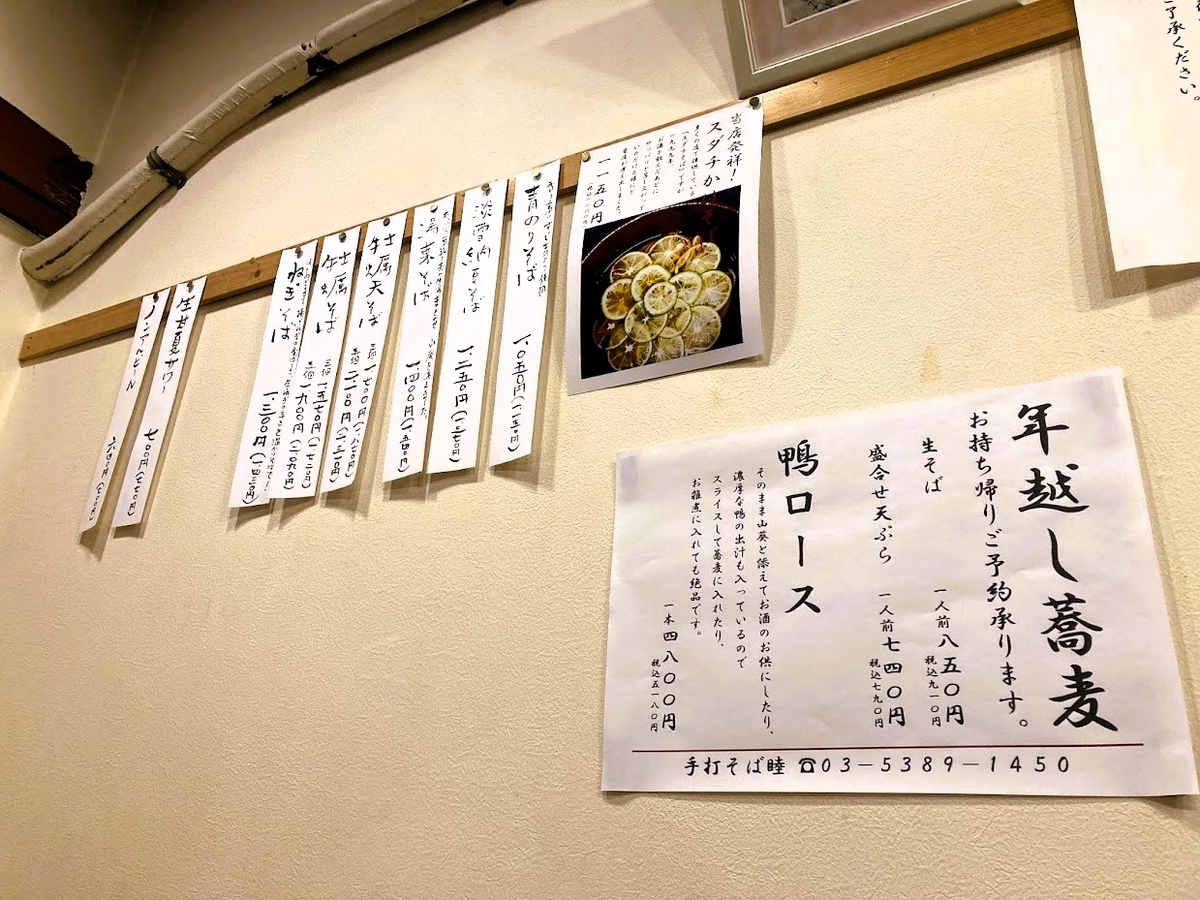 了承ください。
年越し蕎麦
お持ち帰りご予約承ります。
生そば
一人前 八五〇円
税込九一〇円
盛合せ天ぷら
一人前 七四〇円
税込七九〇円
鴨ロース
そのまま山葵と添えてお酒のお供にしたり、
濃厚な鴨の出汁も入っているので
スライスして蕎麦に入れたり、
お雑煮に入れても絶品です。
一本 四八〇〇円
税込五一八〇円
手打そば睦 ☎03-5389-1450
当店発祥!
スダチか
一一五〇円
青のりそば
一、〇五〇円(一一五〇円)
淡雪納豆そば
一、二五〇円(一三七〇円)
湯葉そば
一、四〇〇円(一、五四〇円)
牡蠣天そば
三個 一、七〇〇円(一、八七〇円)
五個 二、一〇〇円(二、三一〇円)
牡蠣そば
三個 一、五七〇円(一、七二〇円)
五個 一、九〇〇円(二、〇九〇円)
ねぎそば
一、三〇〇円(一、四三〇円)
生甘夏サワー
七〇〇円(七七〇円)
ノンアルビール